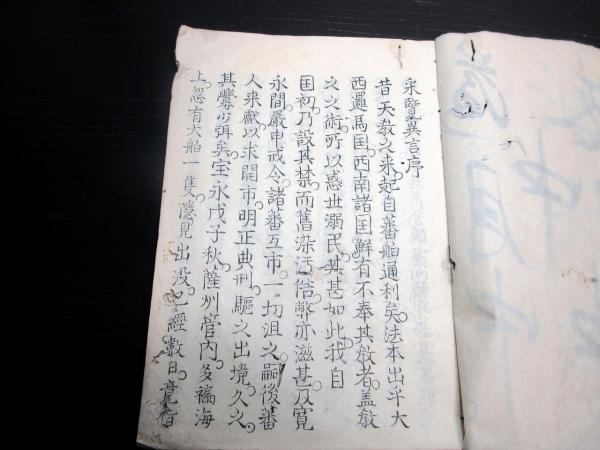 采覧異言序
昔天教之来起自蕃舶通利矣法本出乎大
西邏馬国西南諸国鮮有不奉其教者蓋教
之之術所以惑世溺民其甚如此我自
国初乃設其禁而舊染汚俗弊亦滋甚及寛
永間嚴申戒令諸蕃互市一切沮之嗣後蕃
人来獻以求開市明正典刑驅之出境久之
其釁少弭矣宝永戊子秋薩州管内多褹海
上忽有大舶一隻隠見出没已經數日竟指